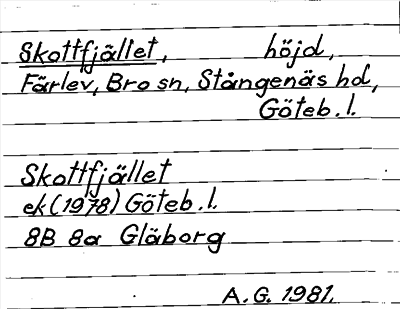 Skottfjället, höjd,
Färlev, Bro sn, Stångenäs hd,
Göteb. l.
Skottfjället
ek (1978) Göteb. l.
8B 8a Gläborg
A. G. 1981.